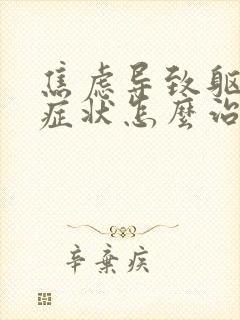 焦虑导致躯
症状怎麼治
辛棄疾